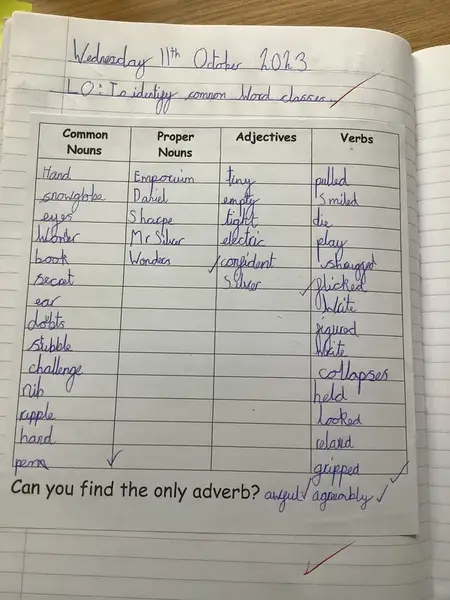 Wednesday 11th October 2023
LO: To identify common Word classes.
Common Nouns Proper Nouns Adjectives Verbs
Hand Emporium tiny pulled
snowglobe Daniel empty Smiled
eyes Sharpe tight die
Wonder Mr Silver electric play
book Wonders confident shrugged
secret Silver flicked
ear Write
doubts figured
stubble Write
challenge collapses
nib held
ripple looked
hand
pens gripped
Can you find the only adverb? awful agreeably